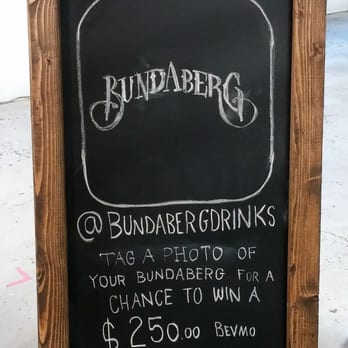 BUNDABERG
@BUNDABERGDRINKS
TAG A PHOTO OF
YOUR BUNDABERG FOR A
CHANCE TO WIN A
$250.00 BEVMO